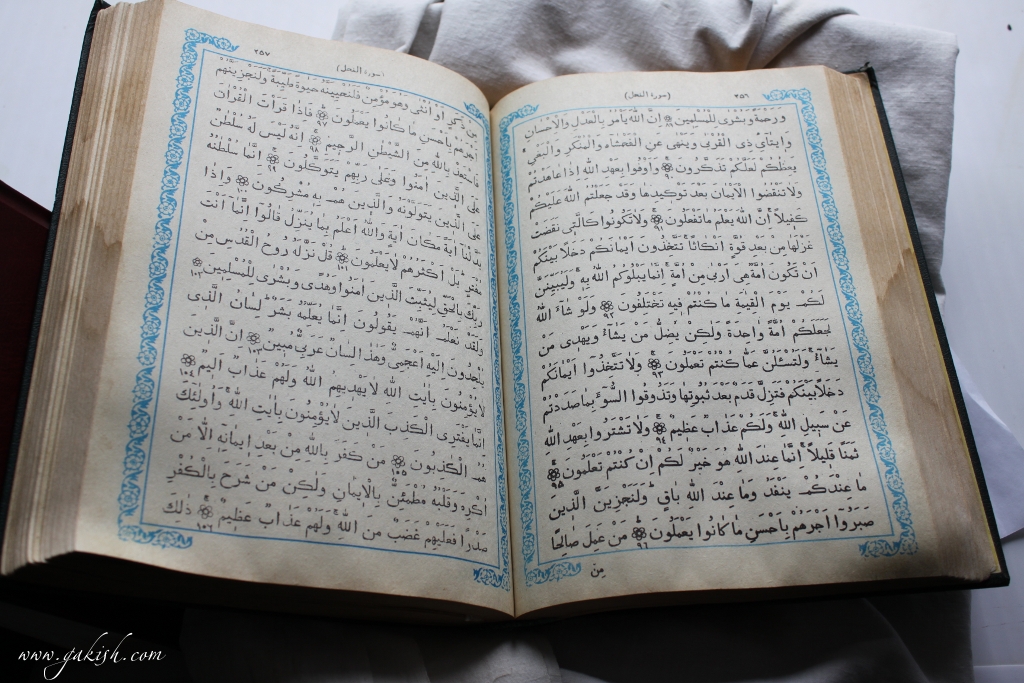 ٢٥٦
(سورة النحل)
ورحمة وبشرى للمسلمين ٨٩ ان الله يأمر بالعدل والاحسان
وايتآئ ذى القربى وينهى عن الفحشاء والمنكر والبغى
يعظكم لعلكم تذكرون ٩٠ واوفوا بعهد الله اذا عاهدتم
ولا تنقضوا الايمان بعد توكيدها وقد جعلتم الله عليكم
كفيلا ان الله يعلم ما تفعلون ٩١ ولا تكونوا كالتى نقضت
غزلها من بعد قوة انكاثا تتخذون ايمانكم دخلا بينكم
ان تكون امة هى اربى من امة انما يبلوكم الله به وليبينن
لكم يوم القيمة ما كنتم فيه تختلفون ٩٢ ولو شآء الله
لجعلكم امة واحدة ولكن يضل من يشآء ويهدى من
يشآء ولتسئلن عما كنتم تعملون ٩٣ ولا تتخذوا ايمانكم
دخلا بينكم فتزل قدم بعد ثبوتها وتذوقوا السوء بما صددتم
عن سبيل الله ولكم عذاب عظيم ٩٤ ولا تشتروا بعهد الله
ثمنا قليلا انما عند الله هو خير لكم ان كنتم تعلمون ٩٥
ما عندكم ينفد وما عند الله باق ولنجزين الذين
صبروا اجرهم باحسن ما كانوا يعملون ٩٦ من عمل صالحا
من
٢٥٧
(سورة النحل)
من ذكر او انثى وهو مؤمن فلنحيينه حيوة طيبة ولنجزينهم
اجرهم باحسن ما كانوا يعملون ٩٧ فاذا قرات القران
فاستعذ بالله من الشيطن الرجيم ٩٨ انه ليس له سلطن
على الذين امنوا وعلى ربهم يتوكلون ٩٩ انما سلطنه
على الذين يتولونه والذين هم به مشركون ١٠٠ واذا
بدلنا اية مكان اية والله اعلم بما ينزل قالوا انما انت
مفتر بل اكثرهم لا يعلمون ١٠١ قل نزله روح القدس من
ربك بالحق ليثبت الذين امنوا وهدى وبشرى للمسلمين ١٠٢
ولقد نعلم انهم يقولون انما يعلمه بشر لسان الذى
يلحدون اليه اعجمى وهذا لسان عربى مبين ١٠٣ ان الذين
لا يؤمنون بايت الله لا يهديهم الله ولهم عذاب اليم ١٠٤
انما يفترى الكذب الذين لا يؤمنون بايت الله واولئك
هم الكذبون ١٠٥ من كفر بالله من بعد ايمانه الا من
اكره وقلبه مطمئن بالايمان ولكن من شرح بالكفر
صدرا فعليهم غضب من الله ولهم عذاب عظيم ١٠٦ ذلك
www.gakish.com